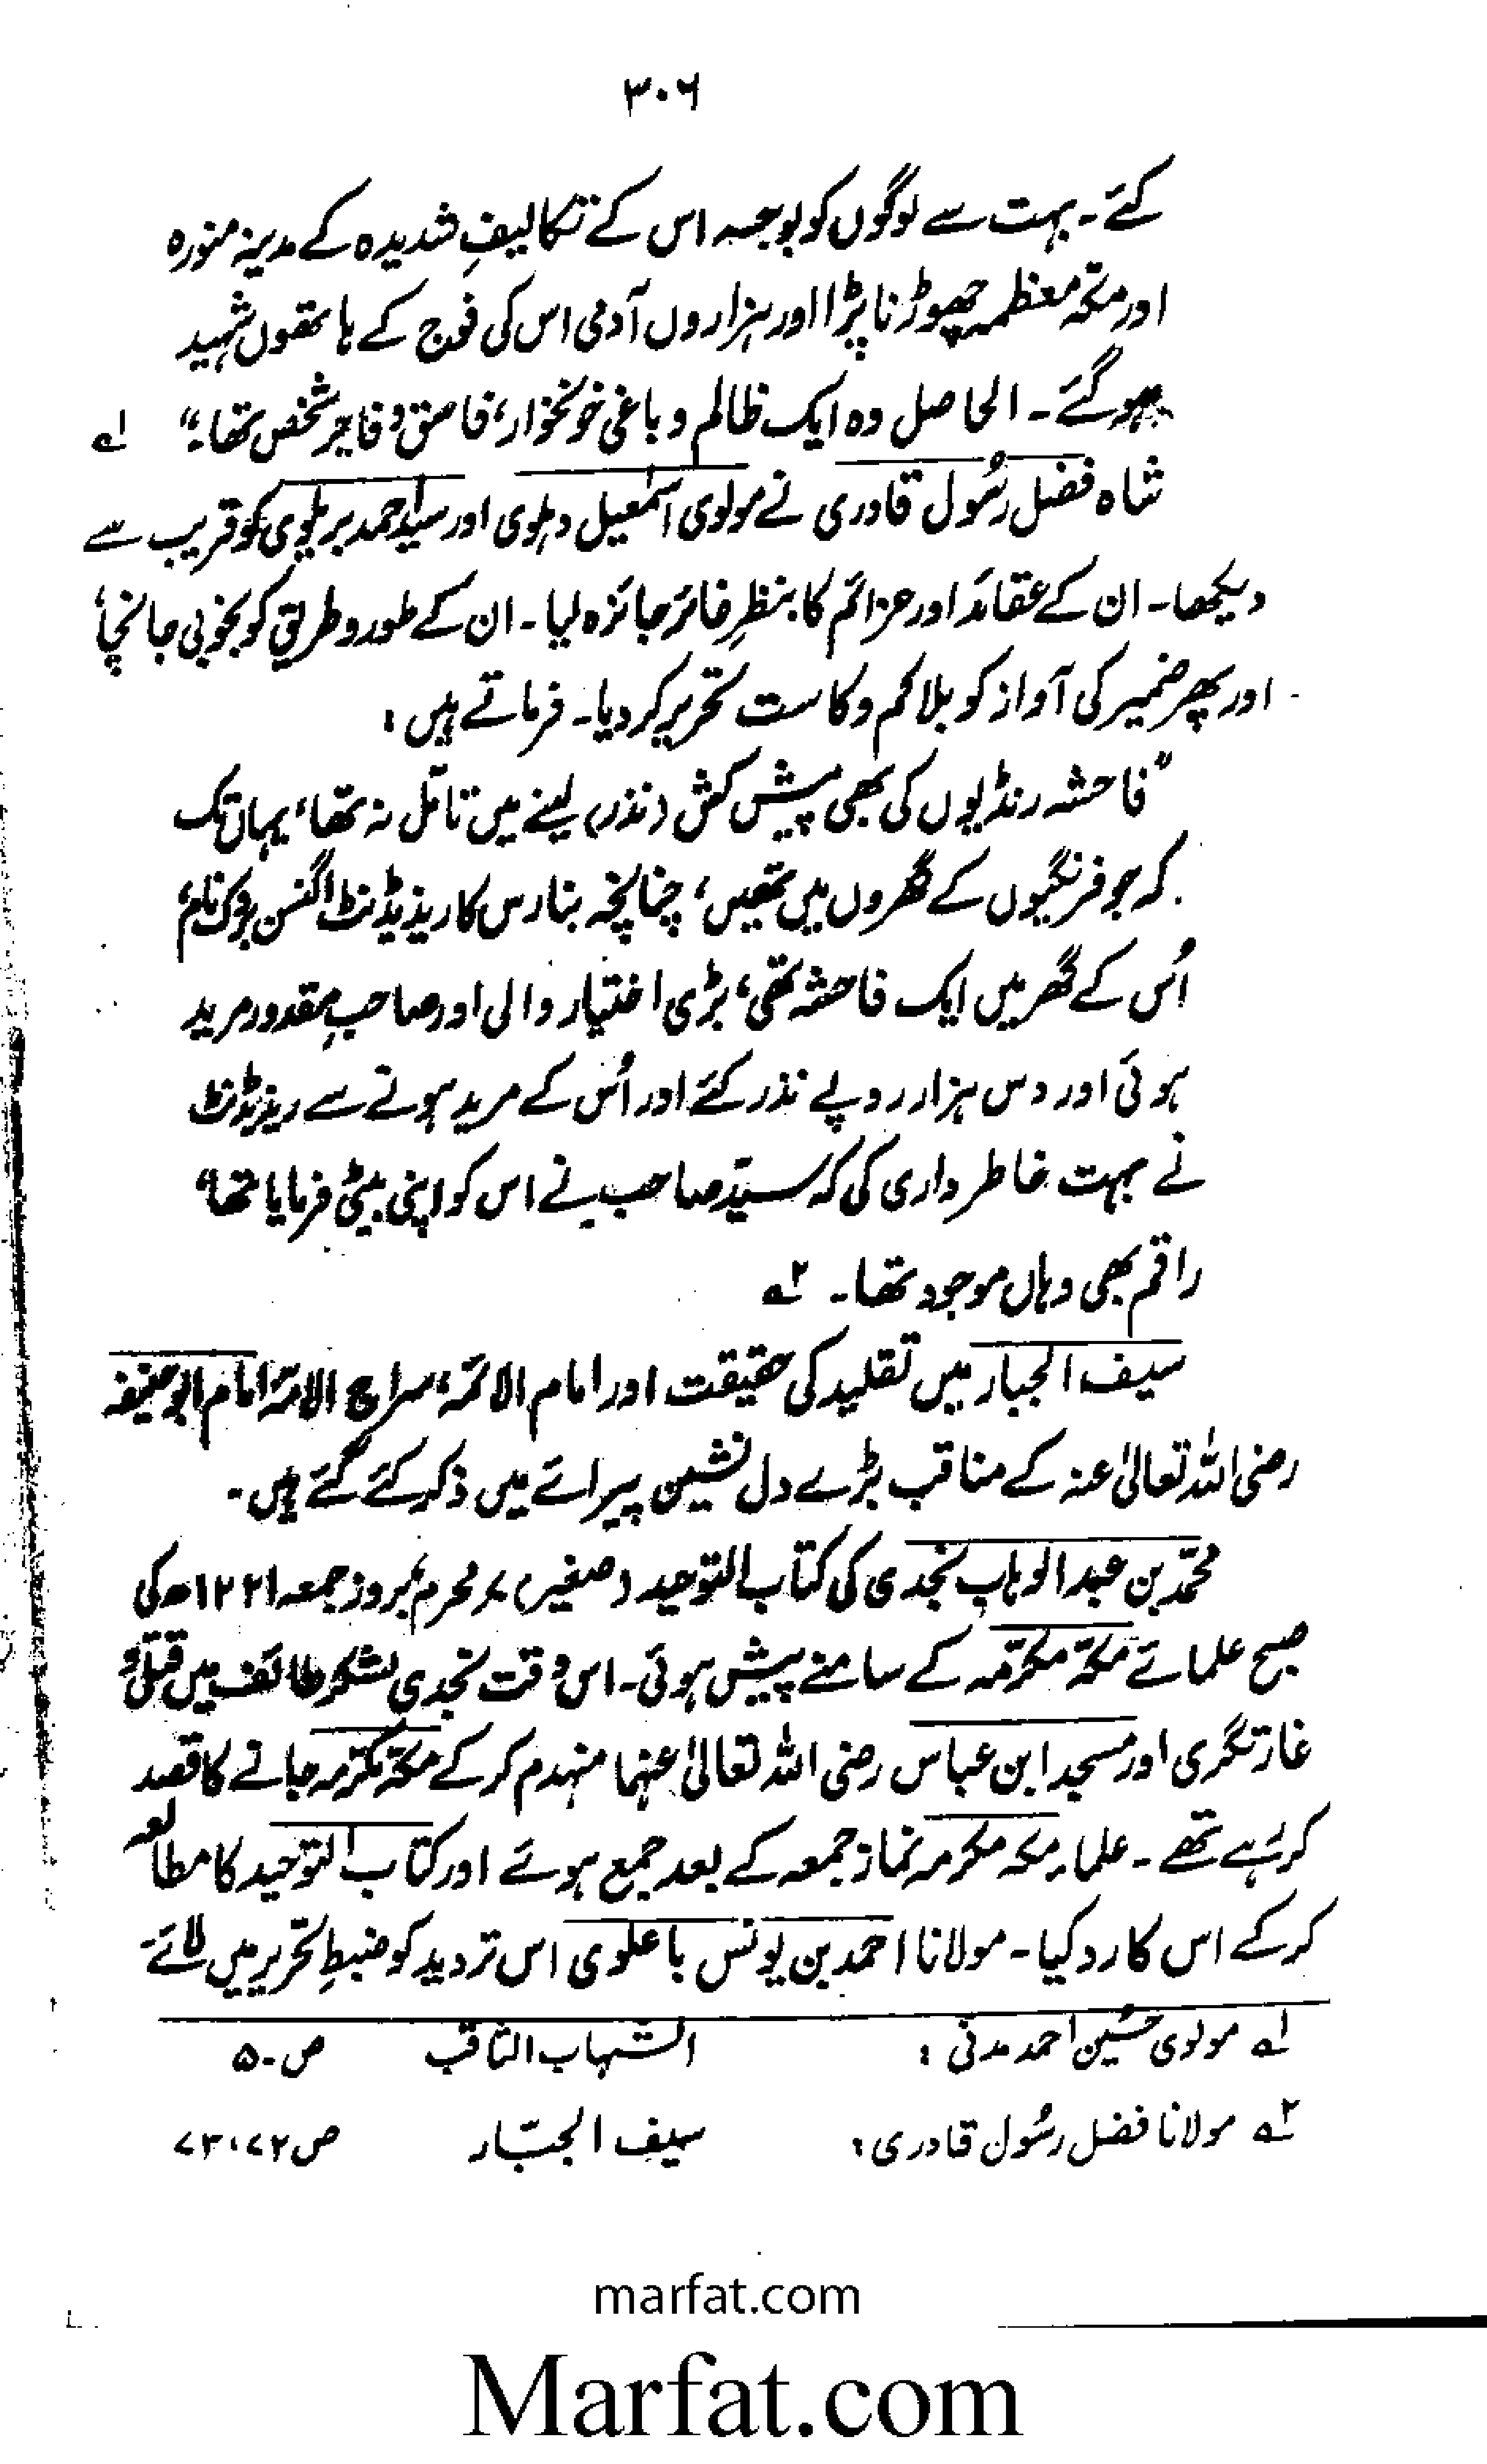 ۳۰۶
کئے۔ بہت سے لوگوں کو بوجہ اس کے تکالیفِ شدیدہ کے مدینہ منورہ
اور مکّہ معظمہ چھوڑنا پڑا اور ہزاروں آدمی اس کی فوج کے ہاتھوں شہید
ہوگئے۔ الحاصل وہ ایک ظالم و باغی خونخوار، فاسق و فاجر شخص تھا۔" ۱؎
شاہ فضل رسُول قادری نے مولوی اسمٰعیل دہلوی اور سید احمد بریلوی کو قریب سے
دیکھا۔ ان کے عقائد اور عزائم کا بنظرِ غائر جائزہ لیا۔ ان کے طور و طریق کو بخوبی جانچا،
اور پھر ضمیر کی آواز کو بلا کم و کاست تحریر کر دیا۔ فرماتے ہیں :
"فاحشہ رنڈیوں کی بھی پیش کش (نذر) لینے میں تامّل نہ تھا، یہاں تک
کہ جو فرنگیوں کے گھروں میں تھیں، چنانچہ بنارس کا ریذیڈنٹ اگنسن بروک نام،
اُس کے گھر میں ایک فاحشہ تھی، بڑی اختیار والی اور صاحبِ مقدور مرید
ہوئی اور دس ہزار روپے نذر کئے اور اُس کے مرید ہونے سے ریذیڈنٹ
نے بہت خاطر داری کی کہ سیّد صاحب نے اس کو اپنی بیٹی فرمایا تھا"
راقم بھی وہاں موجود تھا۔ ۲؎
سیف الجبار میں تقلید کی حقیقت اور امام الائمہ، سراج الامۃ امام ابوحنیفہ
رضی اللہ تعالیٰ عنہ کے مناقب بڑے دل نشین پیرائے میں ذکر کئے گئے ہیں۔
محمّد بن عبدالوہاب نجدی کی کتاب التوحید (صغیر) ۷ محرم، بروز جمعہ ۱۲۲۱ھ کی
صبح علمائے مکّہ مکرّمہ کے سامنے پیش ہوئی۔ اس وقت نجدی لشکر طائف میں قتل و
غارتگری اور مسجد ابن عباس رضی اللہ تعالیٰ عنہما منہدم کر کے مکّہ مکرّمہ جانے کا قصد
کر رہے تھے۔ علماء مکہ مکرمہ نماز جمعہ کے بعد جمع ہوئے اور کتاب التوحید کا مطالعہ
کر کے اس کا رد کیا۔ مولانا احمد بن یونس باعلوی اس تردید کو ضبطِ تحریر میں لائے۔
۱؎ مولوی حسُین احمد مدنی : الشہاب الثاقب ص ۵۰
۲؎ مولانا فضل رسُول قادری : سیف الجبّار ص ۷۲، ۷۳
marfat.com
Marfat.com